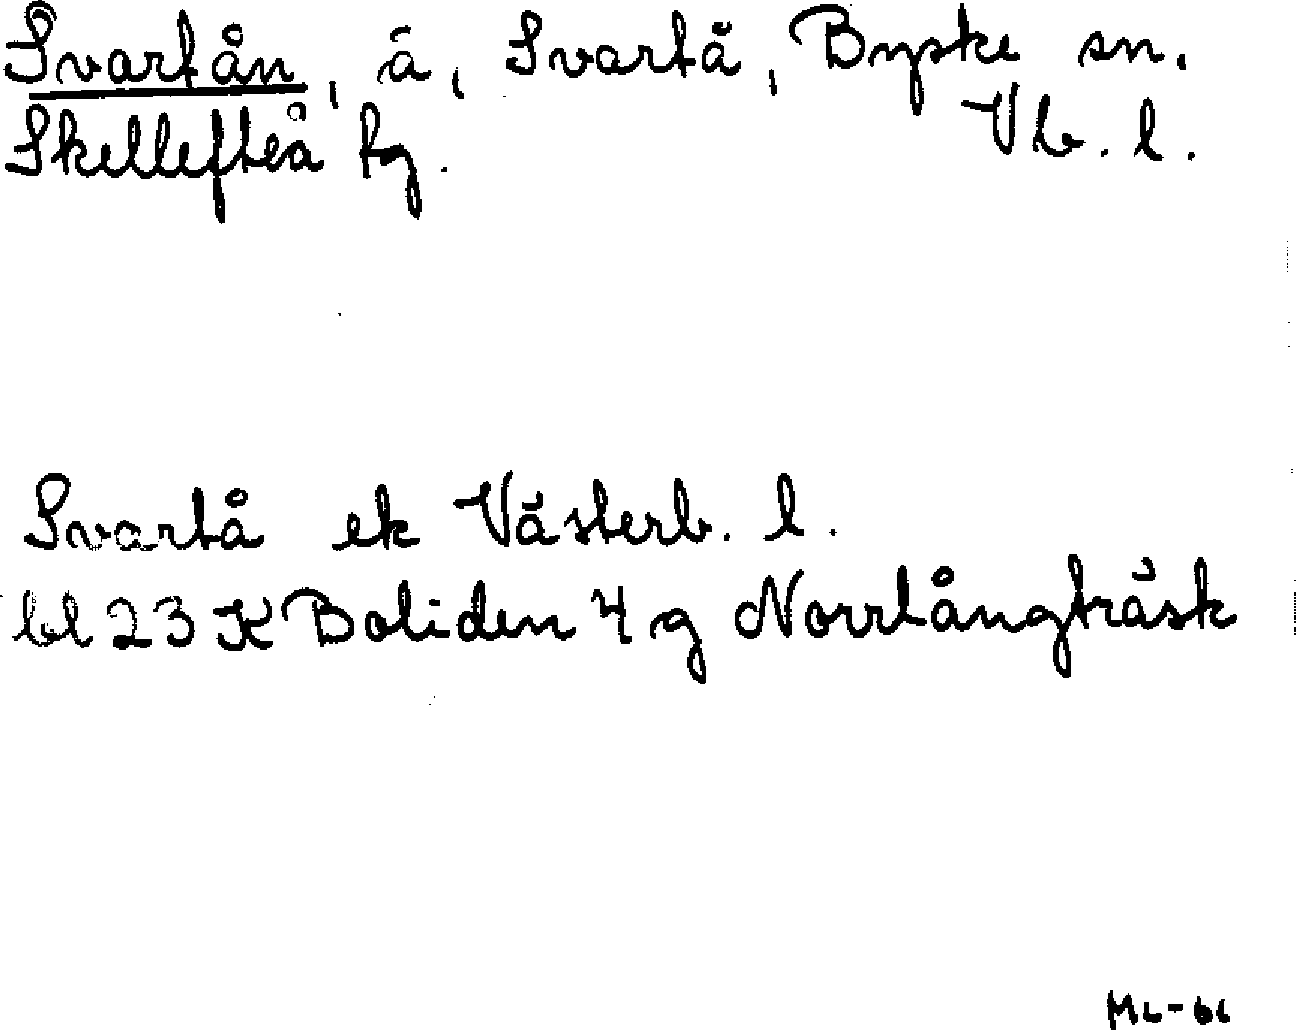 Svartån, å, Svartå, Byske sn.
Skellefteå tg. Vb. l.
Svartå ek Västerb. l.
bl 23 K Boliden 4 g Norrlångträsk